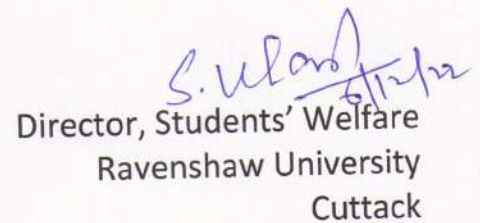 6/12/22
Director, Students' Welfare
Ravenshaw University
Cuttack